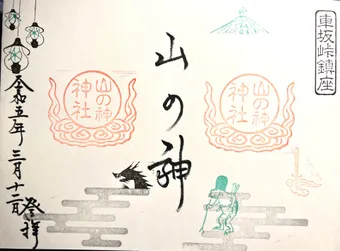 車坂峠鎮座
山の神
山の神
神社
山の神
神社
令和五年三月十二日
登拝